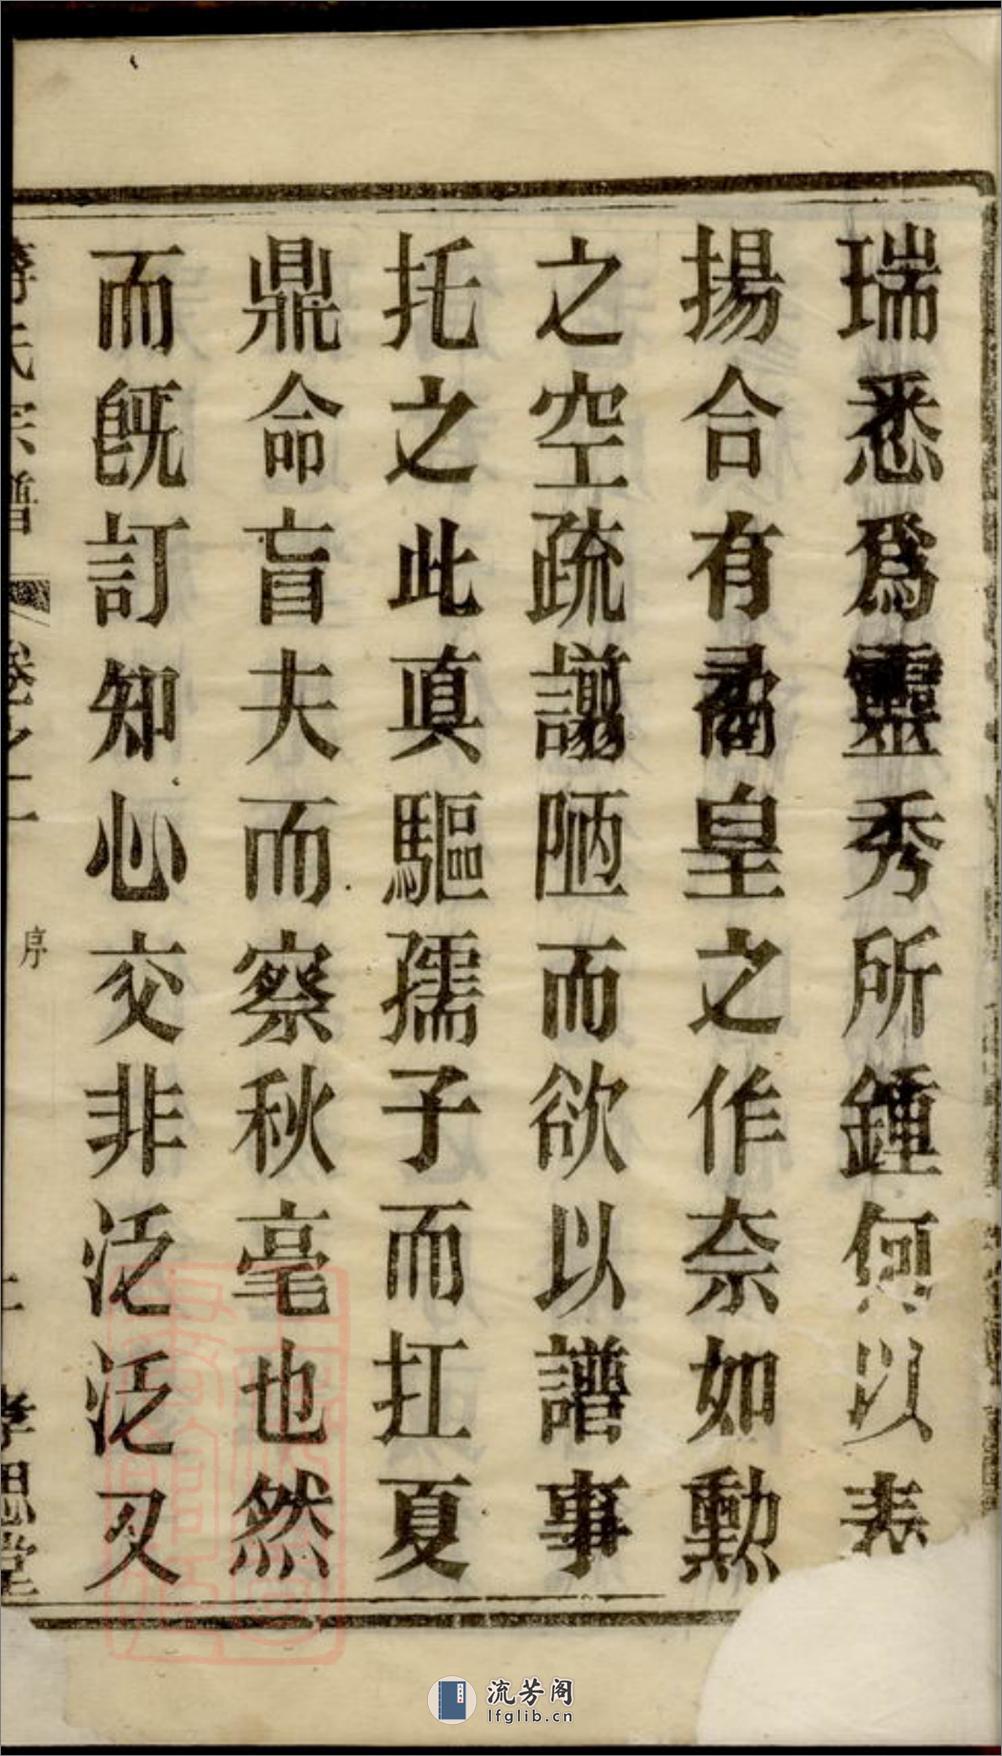 瑞悉爲靈秀所鍾何以表
揚合有矞皇之作奈如勲
之空疏譾陋而欲以譜事
托之此真驅孺子而扛夏
鼎命盲夫而察秋毫也然
而既訂知心交非泛泛又
氏宗譜 卷之一 序 孝思堂
流芳阁
lfglib.cn